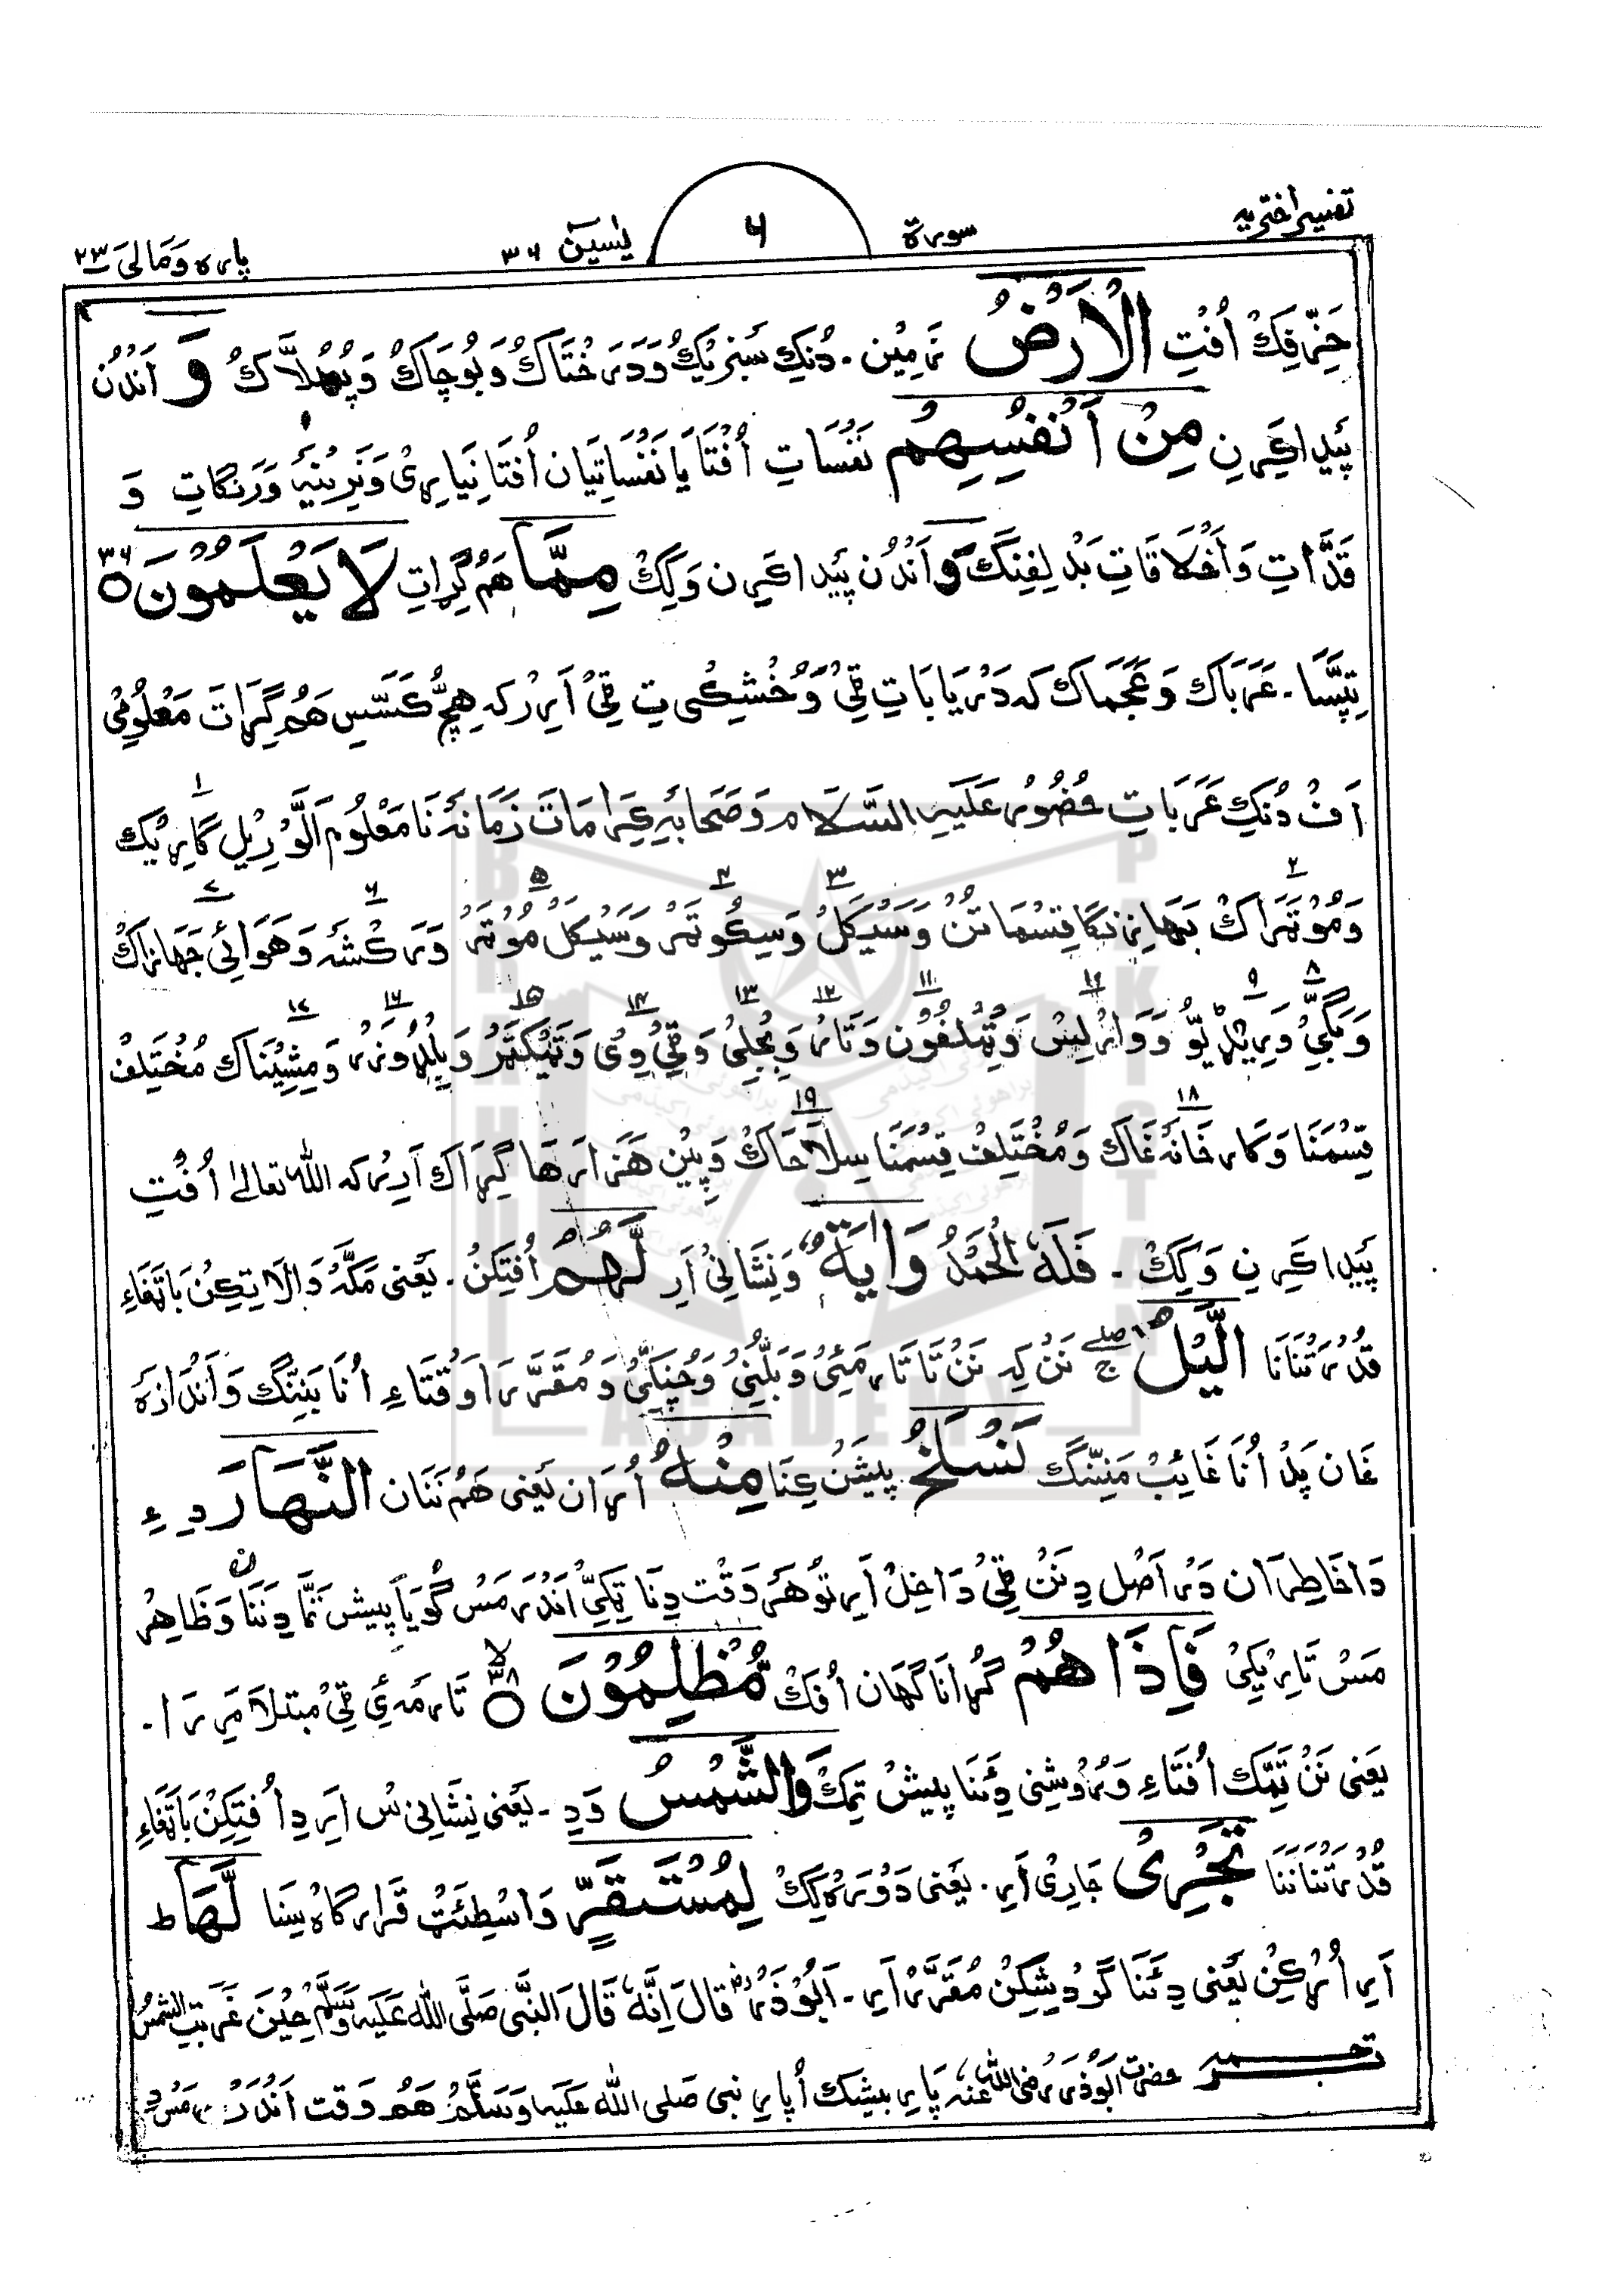 تفسیر اختریہ
سورة
۶
یٰسین ۳۶
پارہ وَمَالِیَ ۲۳
خَرِّفِکْ اُفْتِ الْاَرْضُ زَمِیْن ۔ دُنکِ سَبْزِیْکْ وَ دَرَخْتَاکْ وَ بُوچَاکْ وَ پُھْلَّاکْ وَ اَنْدُنْ
پَیْدا کَرِن مِنْ اَنْفُسِهِمْ نَفْسَاتِ اُفْتَا یَا نَفْسَاتِیَان اُفْتَا نِیَارِیْ وَ نَرِیْنَہ وَ رَنگاتِ وَ
قَدَّاتِ وَ اَخْلَاقَاتِ بَدْلِفِنَکْ وَ اَنْدُن پَیْدا کَرِن وَکِکْ مِمَّا هَمْ گِرَاتِ لَا یَعْلَمُوْنَ ۳۶
تِپَسَّا ۔ عَرَبَاک وَ عَجَمَاک کہ دَرْیَابَاتِ ٹِیْ وَ خُشْکِی تِ ٹِیْ اَرِرْ کہ هِچُّ کَسَّسِ هَمْ گِرَاتَ مَعْلُوْمِیْ
اَفْ دُنکِ عَرَبَاتِ حضُور عَلَیْہِ السَّلَام وَ صَحَابَہِ کِرَامَاتَ زَمَانَہ نَا مَعْلُوم اَلَّوْ رِیْل گَارِیْک ۱
وَ مُوْٹَرَاکْ بَھَازِنکَا قِسْمَاتَنْ ۲ وَ سَیْکَلْ ۳ وَ سِکُوْٹَرْ ۴ وَ سَیْکَل مُوْٹَرْ ۵ وَ رَکْشَہ ۶ وَ هَوَائِی جَهَازَاکْ ۷
وَ بَگِّیْ ۸ وَ رِیْڈِیُّو ۹ وَ وَارْلِیْسْ ۱۰ وَ ٹِیْلِفُوْن ۱۱ وَ تَار ۱۲ وَ بِجْلِیْ ۱۳ وَ ٹِیْ وِیْ ۱۴ وَ ٹَیْکْٹَرْ ۱۵ وَ بِلْڈُوْزَرْ ۱۶ وَ مِشِیْنَاک ۱۷ مُخْتَلِفْ
قِسْمَنَا وَ کَارخَانَہ غَاک ۱۸ وَ مُخْتَلِفْ قِسْمَنَا سِلَاحَاکْ ۱۹ وَ پِیْن هَزَارَهَا گِرَاک اَرِرْ کہ اللّٰہ تعالیٰ اُفْتِ
پَیْدا کَرِن وَکِکْ ۔ فَلَهُ الْحَمْدُ وَاٰیَةٌ وَ نِشَانِیْ اَرِ لَّهُمْ اُفْتِکِنْ ۔ یَعْنی مَکَّہ وَالَاتِکِنْ بَاتَھَاءِ
قُدْرَتْنَانَا الَّیْلُ نَنْ کِہ نَنْ نَا تَارمَئِیْ وَ بَلَّنِیْ وَ چُنَکِّیْ وَ مُقَرَّرَ اَوْقَتَاءِ اُنَا بَنِنِّگ وَ اَنْدَازَہ
غَان پَدْ اُنَا غَائِبْ مَنِنّگ نَسْلَخُ پِیْشَنْ کِنَا مِنْهُ اُرَان یَعْنی هَمْ نَنَان النَّهَارَ دِ ءِ
دَا خَاطِرَان دَر اَصْل دِ نَنْ ٹِیْ دَاخِلْ اَرِ تَوْ هَرْ وَقْت دِ نَا تِکِیِّ اَنْدَرَ مَسْ گُویَا پِیْش تَمَّا دِ نَنَان وَ ظَاهِرْ
مَسْ تَارِیْکِیْ فَاِذَا هُمْ گُرانَا گَهَان اُفَکْ مُّظْلِمُوْنَ ۳۸ تَارمَہ ئِ ٹِیْ مُبتلا مَرِرَا ۔
یَعْنی نَنْ تِمِّک اُفْتَاءِ وَ رُوْشِنی دِئَنَا پِیْشْ تِمَکْ وَالشَّمْسُ وَدِ ۔ یَعْنی نِشَانِی سْ اَرِ دِ اُفْتِکِنْ بَاتَھَاءِ
قُدْرَتْنَانَنَا تَجْرِیْ جَارِیْ اَرِ ۔ یَعْنی دَوْرَہ کِکْ لِمُسْتَقَرٍّ وَاسْطِئَتْ قَرَارگاہ سِنَا لَّهَا ؕ
اَرِ اُرْکِنْ یَعْنی دِئَنَا گَرْدِیْشِکِنْ مُقَرَّرْ اَرِ ۔ اَبُوْذَرْ ؓ قَالَ اِنَّهٗ قَالَ النَّبِّی صَلَّی اللّٰه عَلَیْه وَسَلَّمْ حِیْنَ غَرَبَتِ الشَّمْسُ
ترجمہ حضرت اَبُوْذَر رَضِیَ اللّٰہ عَنْہ پَارِ بیشک اُ پَارِ نبی صلی اللّٰہ عَلَیْہ وَسَلَّمْ هَمُ وَقت اَنْدَرْ مَسْ دِ